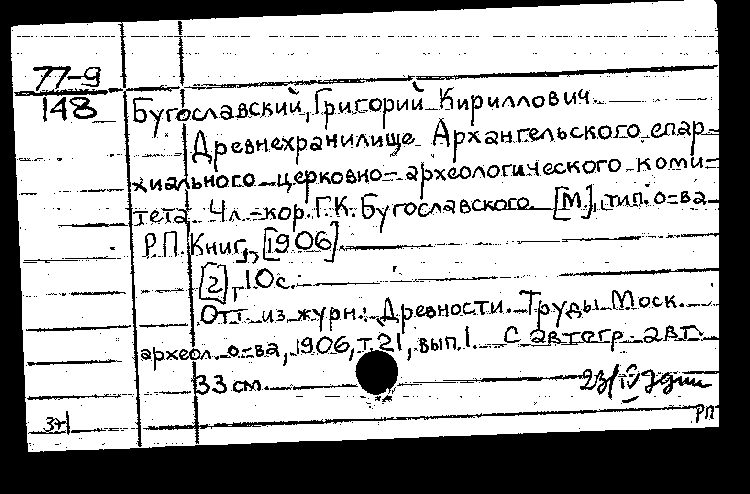 77-9
148
Бугославский, Григорий Кириллович.
Древнехранилище Архангельского епар-
хиального церковно-археологического коми-
тета. Чл.-кор. Г.К. Бугославского. [М], тип. о-ва
Р.П. Книг, [1906]
[2], 10с.
Отт. из журн.: Древности. Труды Моск.
археол. о-ва, 1906, т.21, вып.1. С автогр. авт.
33 см.
23/IV
37
РП